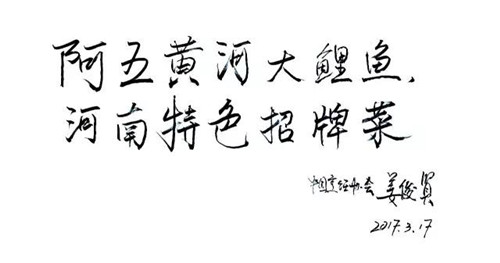 阿五黄河大鲤鱼,
河南特色招牌菜
中国烹饪协会 姜俊贤
2017.3.17